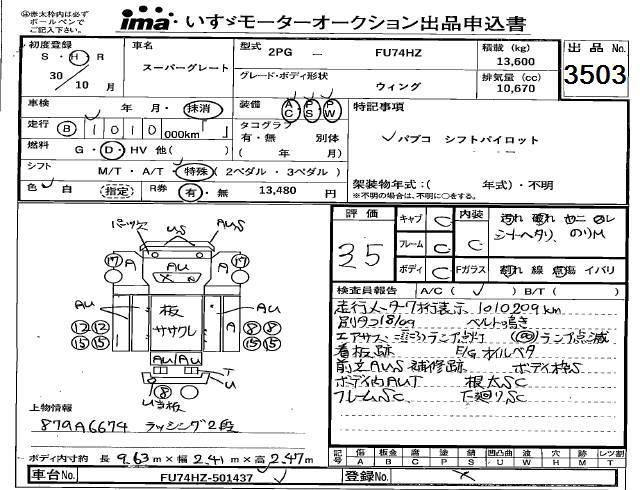 ㊟赤太枠内は必ず
ボールペンで
ご記入下さい。
ima いすゞモーターオークション出品申込書
初度登録 車名 型式 2PG － FU74HZ 積載 (kg) 13,600 出品No.
S・H・R 30/10月 スーパーグレート グレード・ボディ形状 ウィング 排気量 (cc) 10,670 3503
車検 年 月・抹消 装備 AC PS PW 特記事項
走行 1010 000km タコグラフ 有・無 別体 パブコ シフトパイロット
燃料 G・D・HV 他( ) ( 年 月)
シフト M/T・A/T・特殊 (2ペダル・3ペダル)
色 白 (指定) R券 有・無 13,480 円 架装物年式：( 年式)・不明
※不明の場合は、不明に○をする。
評価 キャブ C 内装 汚れ
35 フレーム C C シートヘタリ、のりM
ボディ C Fガラス 割れ 線 点傷 イバリ
検査員報告 A/C( ) B/T( )
走行メーター7桁表示 1010209km
ベルト鳴き
エアサス ランプ点灯 ランプ点滅
看板跡 E/Gオイルベタ
AUS補修跡 ボディ枠S
ボディ内AUT 根太SC
フレームSC 下廻りSC
AU
板
ササクレ
AU/AU
上物情報
879A6674 ラッシング2段
ボディ内寸約 長 9.63m×幅 2.41m×高 2.47m
記号 傷 A 板金 B 腐 C 塗 P 錆 S 凹凸曲 U 波 W 穴 H 跡 M レツ割 T
車台No. FU74HZ-501437 登録No.